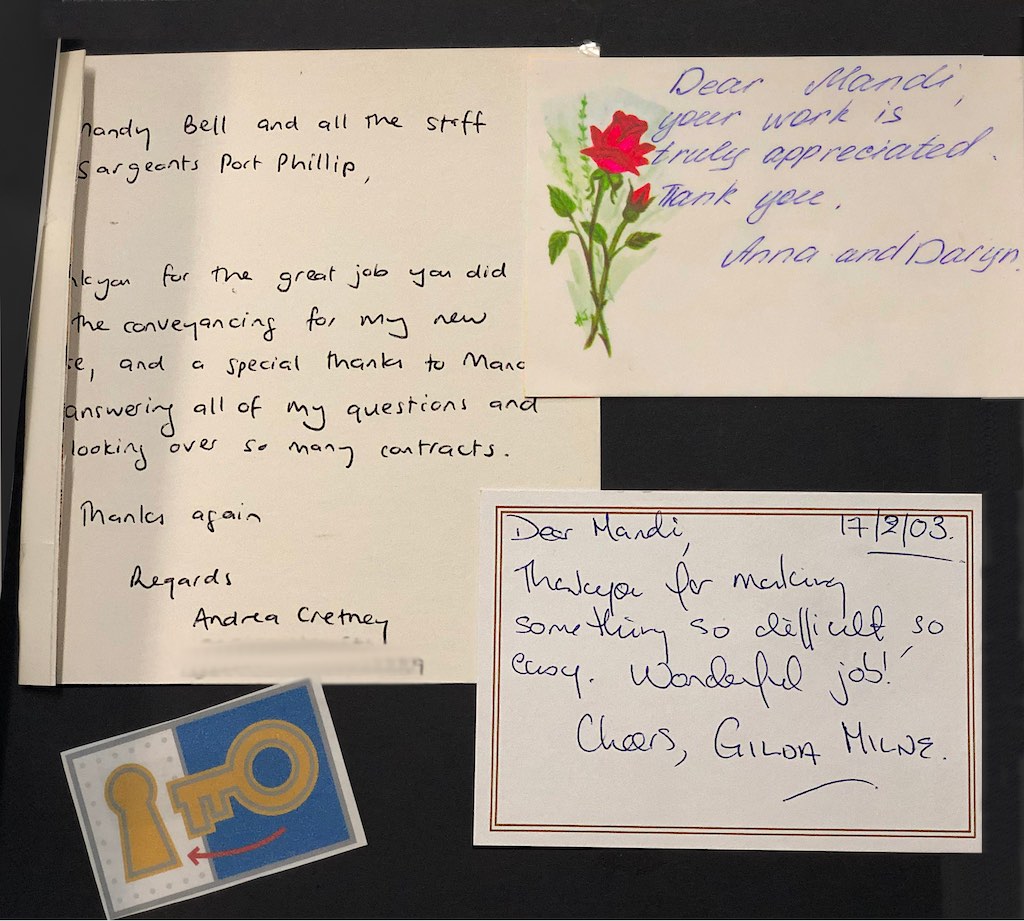 mandy Bell and all the staff
Sargeants Port Phillip,
nkyou for the great job you did
the conveyancing for my new
se, and a special thanks to Mand
answering all of my questions and
looking over so many contracts.
Thanks again
Regards
Andrea Cretney
Dear Mandi,
your work is
truly appreciated.
Thank you.
Anna and Daryn.
Dear Mandi, 17/2/03.
Thankyou for making
something so difficult, so
easy. Wonderful job!
Cheers, GILDA MILNE.